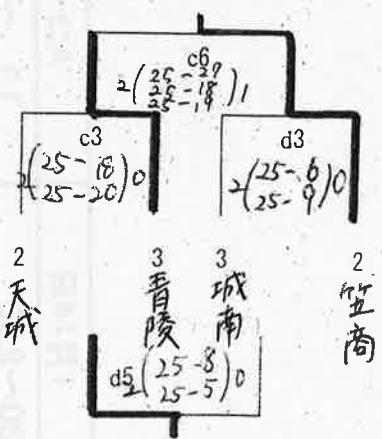 c6
2(25-27
25-18
25-19)1
c3
2(25-18
25-20)0
d3
2(25-6
25-9)0
2 天城
3 青陵
3 城南
2 笠商
d5
2(25-8
25-5)0